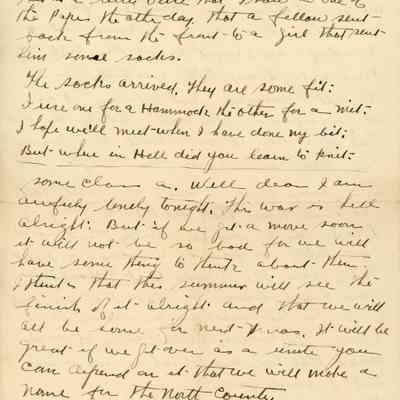 the Paper the other day, that a fellow sent-
back from the front- to a girl that sent
him some socks.
The socks arrived. They are some fit:
I use one for a Hammock the other for a mit:
I hope we'll meet- when I have done my bit:
But- where in Hell did you learn to knit-
some class a. Well dear I am
awfully lonely tonight. This war is hell
alright. But if we get a move soon
it will not be so bad for we will
have some thing to think about then.
I think that this summer will see the
finish of it alright and that we will
all be some for next Xmas. It will be
great if we get over as a unite you
can depend on it that we will make a
name for the North County